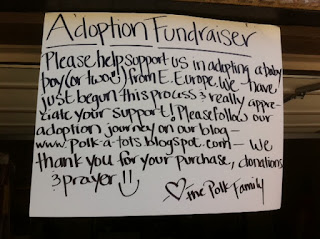 Adoption Fundraiser
Please help support us in adopting a baby
boy (or two!) from E. Europe. We have
just begun this process & really appre-
ciate your support! Please follow our
adoption journey on our blog-
www.polk-a-tots.blogspot.com - We
thank you for your purchase, donations
& prayer!!
♡ the Polk Family